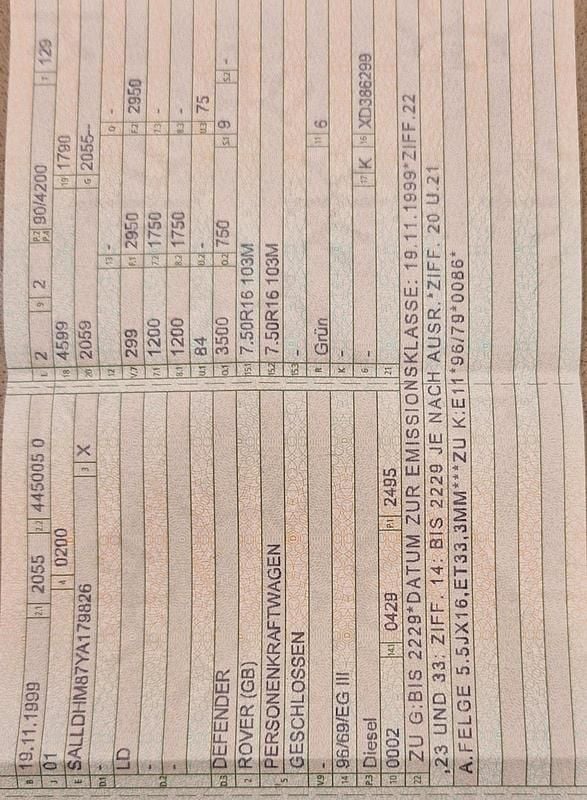 B 19.11.1999 2.1 2055 2.2 445005 0 L 2 9 2 P.2 P.4 90/4200 T 129
J 01 4 0200 18 4599 19 1790
E SALLDHM87YA179826 3 X 20 2059 G 2055--
D.1 - 12 - 13 - Q -
LD V.7 299 F.1 2950 F.2 2950
D.2 - 7.1 1200 7.2 1750 7.3 -
- 8.1 1200 8.2 1750 8.3 -
U.1 84 U.2 - U.3 75
D.3 DEFENDER O.1 3500 O.2 750 S.1 9 S.2 -
2 ROVER (GB) 15.1 7.50R16 103M
5 PERSONENKRAFTWAGEN 15.2 7.50R16 103M
GESCHLOSSEN 15.3 -
V.9 - R Grün 11 6
14 96/69/EG III K -
P.3 Diesel 6 - 17 K 16 XD386299
10 0002 14.1 0429 P.1 2495 21
22 ZU G:BIS 2229*DATUM ZUR EMISSIONSKLASSE: 19.11.1999*ZIFF.22
,23 UND 33: ZIFF. 14: BIS 2229 JE NACH AUSR.*ZIFF. 20 U.21
A.FELGE 5.5JX16,ET33,3MM***ZU K:E11*96/79*0086*